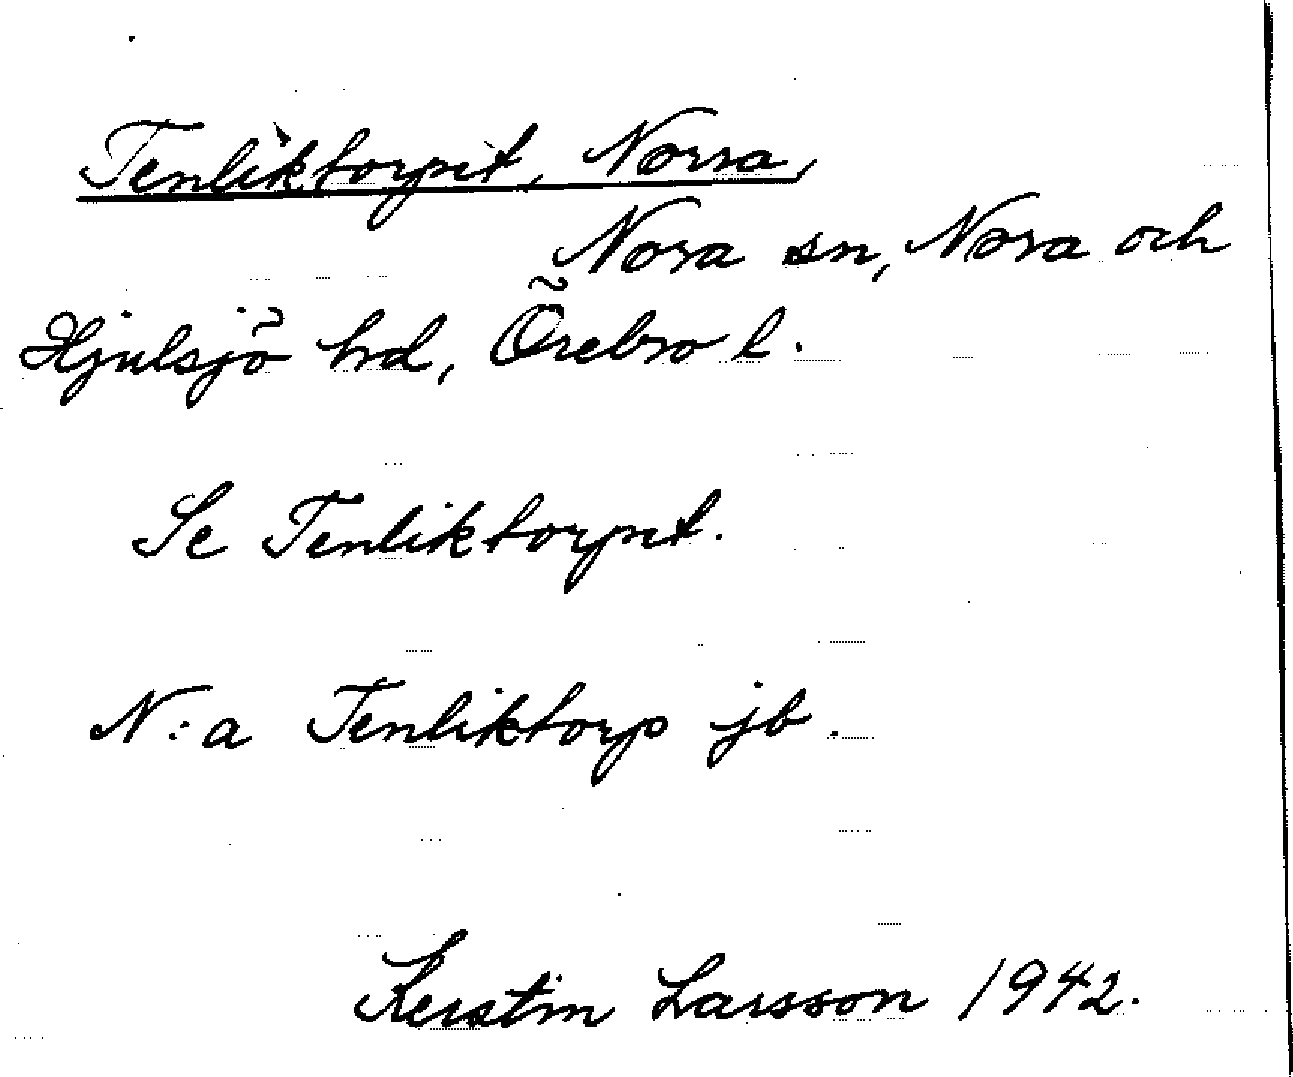 Tenliktorpet, Norra,
Nora sn, Nora och
Hjulsjö hd, Örebro l.
Se Tenliktorpet.
N:a Tenliktorp jb.
Kerstin Larsson 1942.